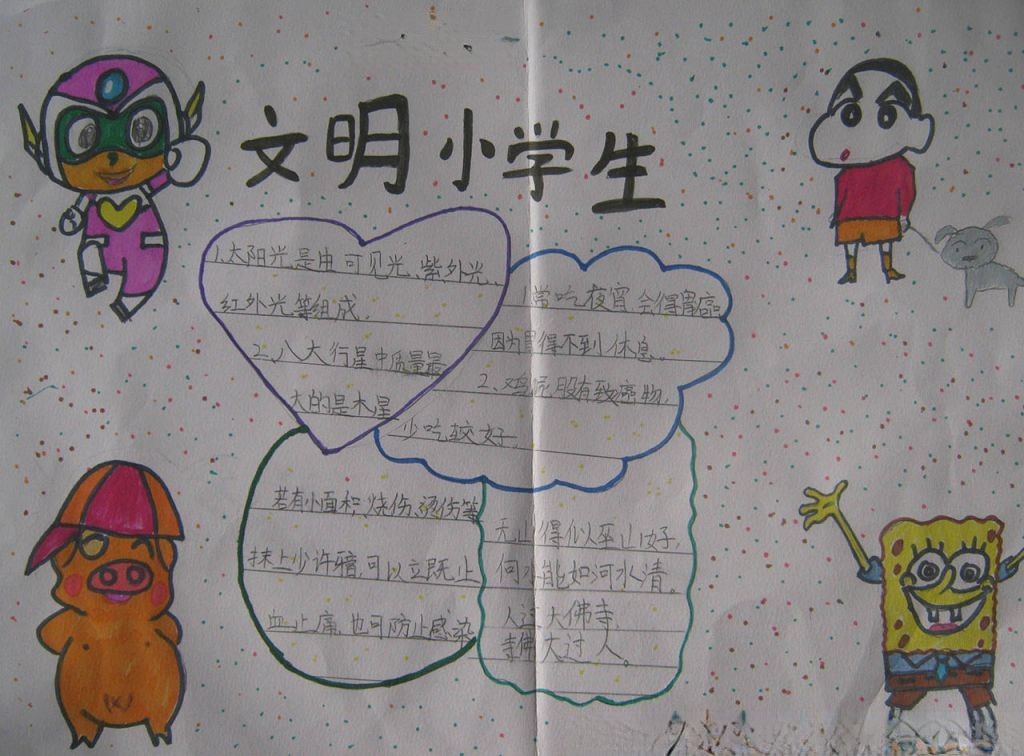 文明小学生
1.太阳光是由可见光、紫外光、
红外光等组成。
2、八大行星中质量最
大的是木星
常吃夜宵,会得胃癌。
因为胃得不到休息。
2、鸡屁股有致癌物,
少吃较好
若有小面积烧伤、烫伤等
抹上少许牙膏,可以立既止
血止痛,也可防止感染
无山得似巫山好,
何水能如河水清。
人过大佛寺,
寺佛大过人。